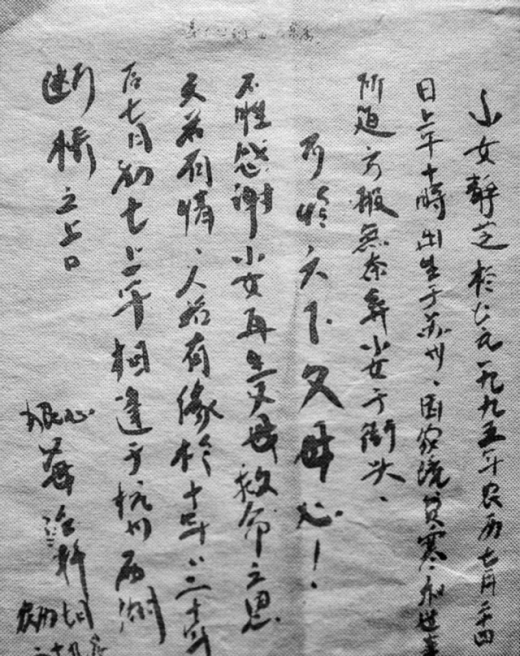 小女靜芝於公元一九九五年农历七月二十四
日上午十時出生于苏州、因家境貧寒和世事
所迫万般無奈棄小女于街头、
可怜天下父母心!
不胜感谢小女再生父母救命之恩
天若有情、人若有缘於十年、二十年
后七月初七上午相逢于杭州西湖
断橋之上